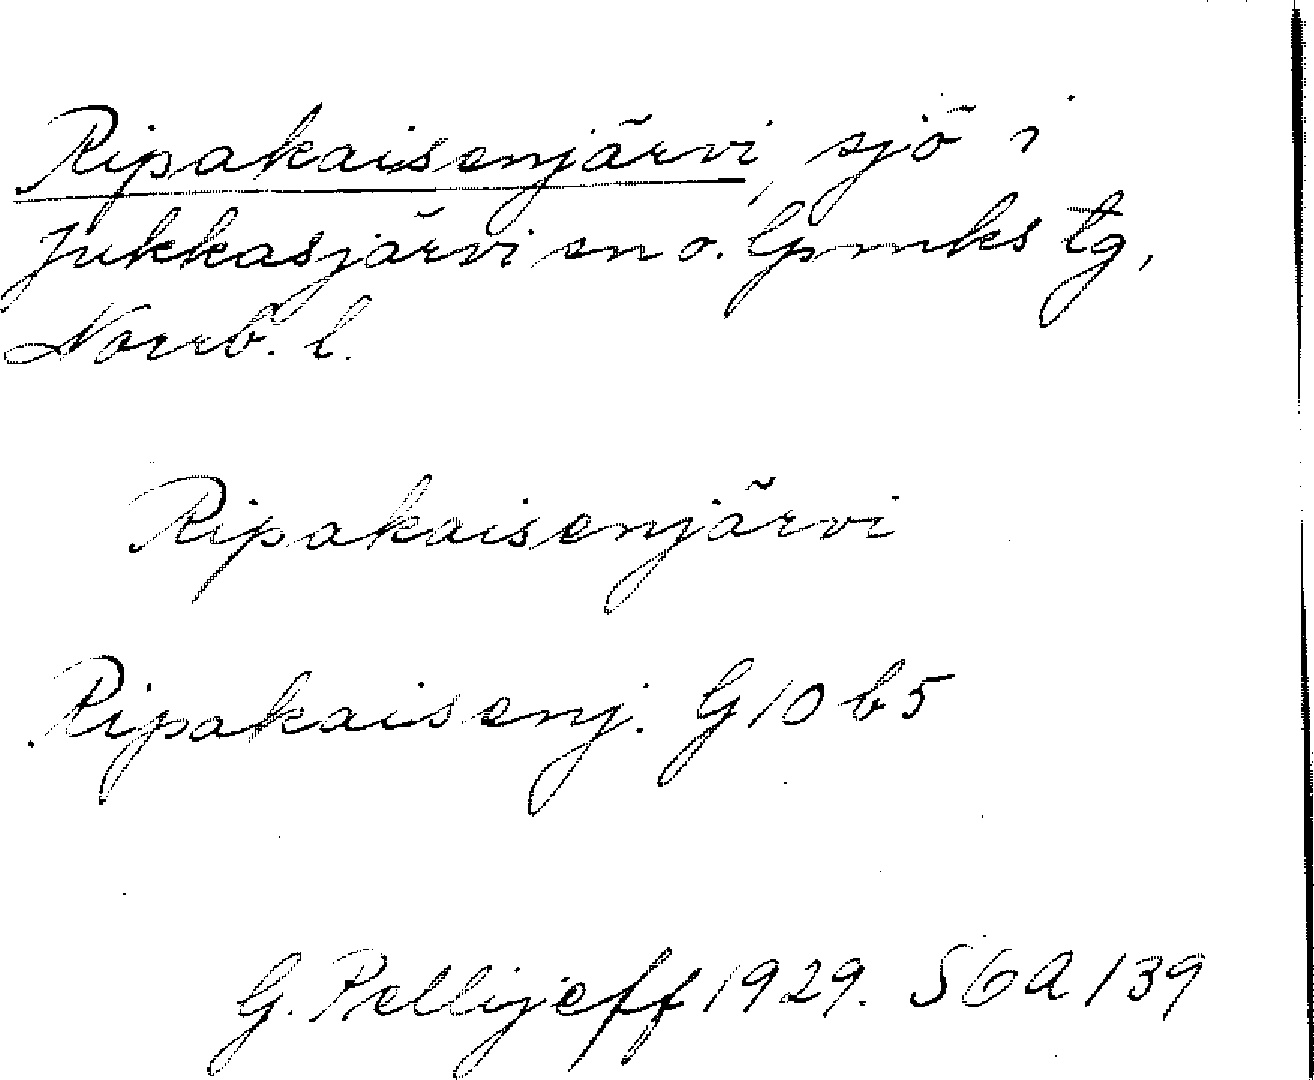 Ripakaisenjärvi, sjö i
Jukkasjärvi sn o. lpmks tg,
Norrb. l.
Ripakaisenjärvi
Ripakaisenj. G10b5
G. Pellijeff 1929. SGA 139